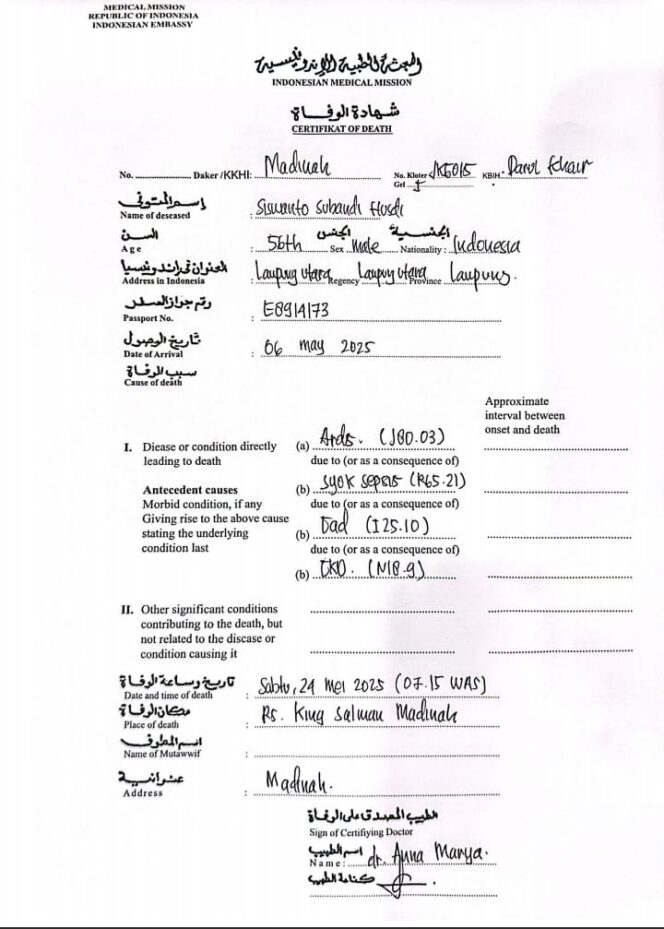 MEDICAL MISSION
REPUBLIC OF INDONESIA
INDONESIAN EMBASSY
البعثة الطبية الإندونيسية
INDONESIAN MEDICAL MISSION
شهادة الوفاة
CERTIFIKAT OF DEATH
No. Daker /KKHI: Madinah No. Kloter /KG015 KBIH: Darul Khair
Gel I
اسم المتوفى
Name of deseased : Siswanto Subandi Husdi
السن الجنس الجنسية
Age : 56th Sex Male Nationality : Indonesia
العنوان في إندونيسيا
Address in Indonesia : Lampung Utara Regency Lampung Utara Province Lampung.
رقم جواز السفر
Passport No. : E8914173
تاريخ الوصول
Date of Arrival : 06 May 2025
سبب الوفاة
Cause of death
Approximate
interval between
onset and death
I. Diease or condition directly (a) Ards. (J80.03)
leading to death due to (or as a consequence of)
Antecedent causes (b) Syok sepsis (R65.21)
Morbid condition, if any due to (or as a consequence of)
Giving rise to the above cause
stating the underlying (b) (I25.10)
condition last due to (or as a consequence of)
(b) CKD. (N18.9)
II. Other significant conditions
contributing to the death, but
not related to the discase or
condition causing it
تاريخ وساعة الوفاة
Date and time of death : Sabtu, 24 Mei 2025 (07.15 WAS)
مكان الوفاة
Place of death : RS. King Salman Madinah
اسم المطوف
Name of Mutawwif :
عنوانه
Address : Madinah.
الطبيب المصدق على الوفاة
Sign of Certifiying Doctor
اسم الطبيب
Name : dr. Anna Marya.